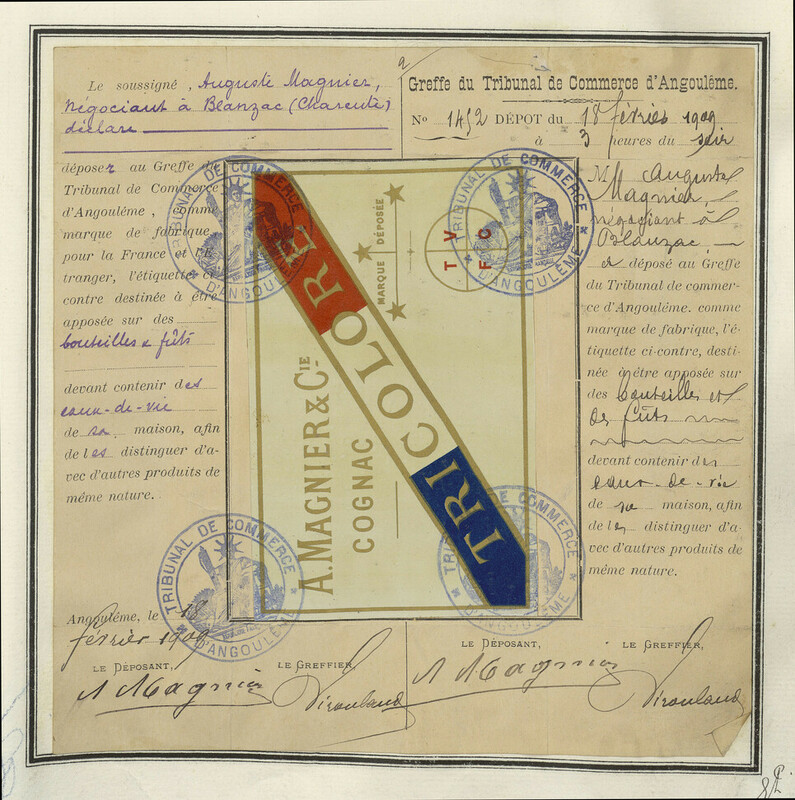 Le soussigné, Auguste Magnier,
Négociant à Blanzac (Charente)
déclare
déposer au Greffe du
Tribunal de Commerce
d'Angoulême, comme
marque de fabrique
pour la France et l'É-
tranger, l'étiquette ci-
contre destinée à être
apposée sur des
bouteilles & fûts
devant contenir des
eaux-de-vie
de sa maison, afin
de les distinguer d'a-
vec d'autres produits de
même nature.
Angoulême, le 18
février 1909
LE DÉPOSANT,
A Magnier
LE GREFFIER,
MARQUE DÉPOSÉE
T V
F C
TRICOLORE
A. MAGNIER & CIE
COGNAC
TRIBUNAL DE COMMERCE
D'ANGOULÊME
TRIBUNAL DE COMMERCE
D'ANGOULÊME
TRIBUNAL DE COMMERCE
D'ANGOULÊME
COMMERCE
D'ANGOULÊME
Greffe du Tribunal de Commerce d'Angoulême.
No 1452 DÉPOT du 18 février 1909
à 3 heures du soir
M. Auguste
Magnier,
négociant à
Blanzac,
a déposé au Greffe
du Tribunal de commer-
ce d'Angoulême. comme
marque de fabrique, l'é-
tiquette ci-contre, desti-
née à être apposée sur
des bouteilles et
des fûts
devant contenir des
eaux-de-vie
de sa maison, afin
de les distinguer d'a-
vec d'autres produits de
même nature.
LE DÉPOSANT,
A Magnier
LE GREFFIER,